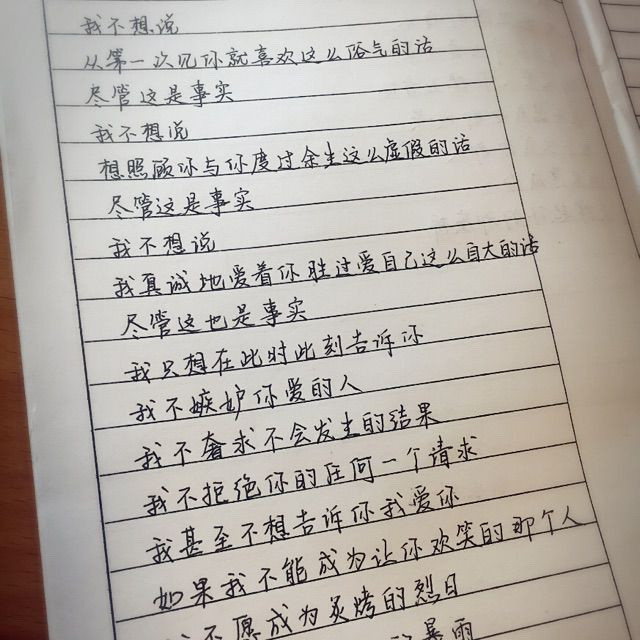 我不想说
从第一次见你就喜欢这么俗气的话
尽管这是事实
我不想说
想照顾你与你度过余生这么虚假的话
尽管这是事实
我不想说
我真诚地爱着你胜过爱自己这么自大的话
尽管这也是事实
我只想在此时此刻告诉你
我不嫉妒你爱的人
我不奢求不会发生的结果
我不拒绝你的任何一个请求
我甚至不想告诉你我爱你
如果我不能成为让你欢笑的那个人
不愿成为炙烤的烈日
暴雨